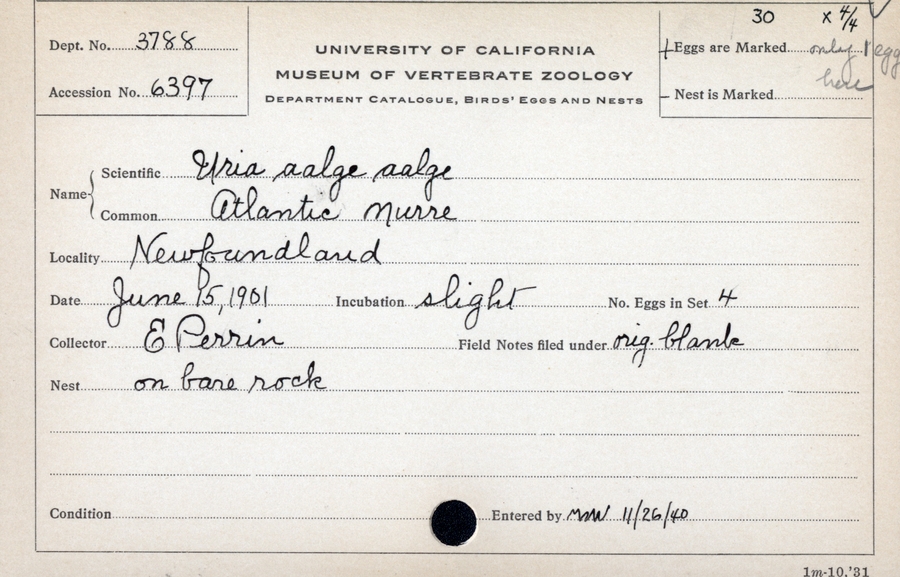 30 x 4/4
Dept. No. 3788
UNIVERSITY OF CALIFORNIA
MUSEUM OF VERTEBRATE ZOOLOGY
DEPARTMENT CATALOGUE, BIRDS' EGGS AND NESTS
Accession No. 6397
Eggs are Marked only 1 egg
here
Nest is Marked
Name
Scientific Uria aalge aalge
Common Atlantic Murre
Locality Newfoundland
Date June 15, 1901 Incubation slight No. Eggs in Set 4
Collector E Perrin Field Notes filed under orig. blank
Nest on bare rock
Condition Entered by MMW 11/26/40
1m-10,'31